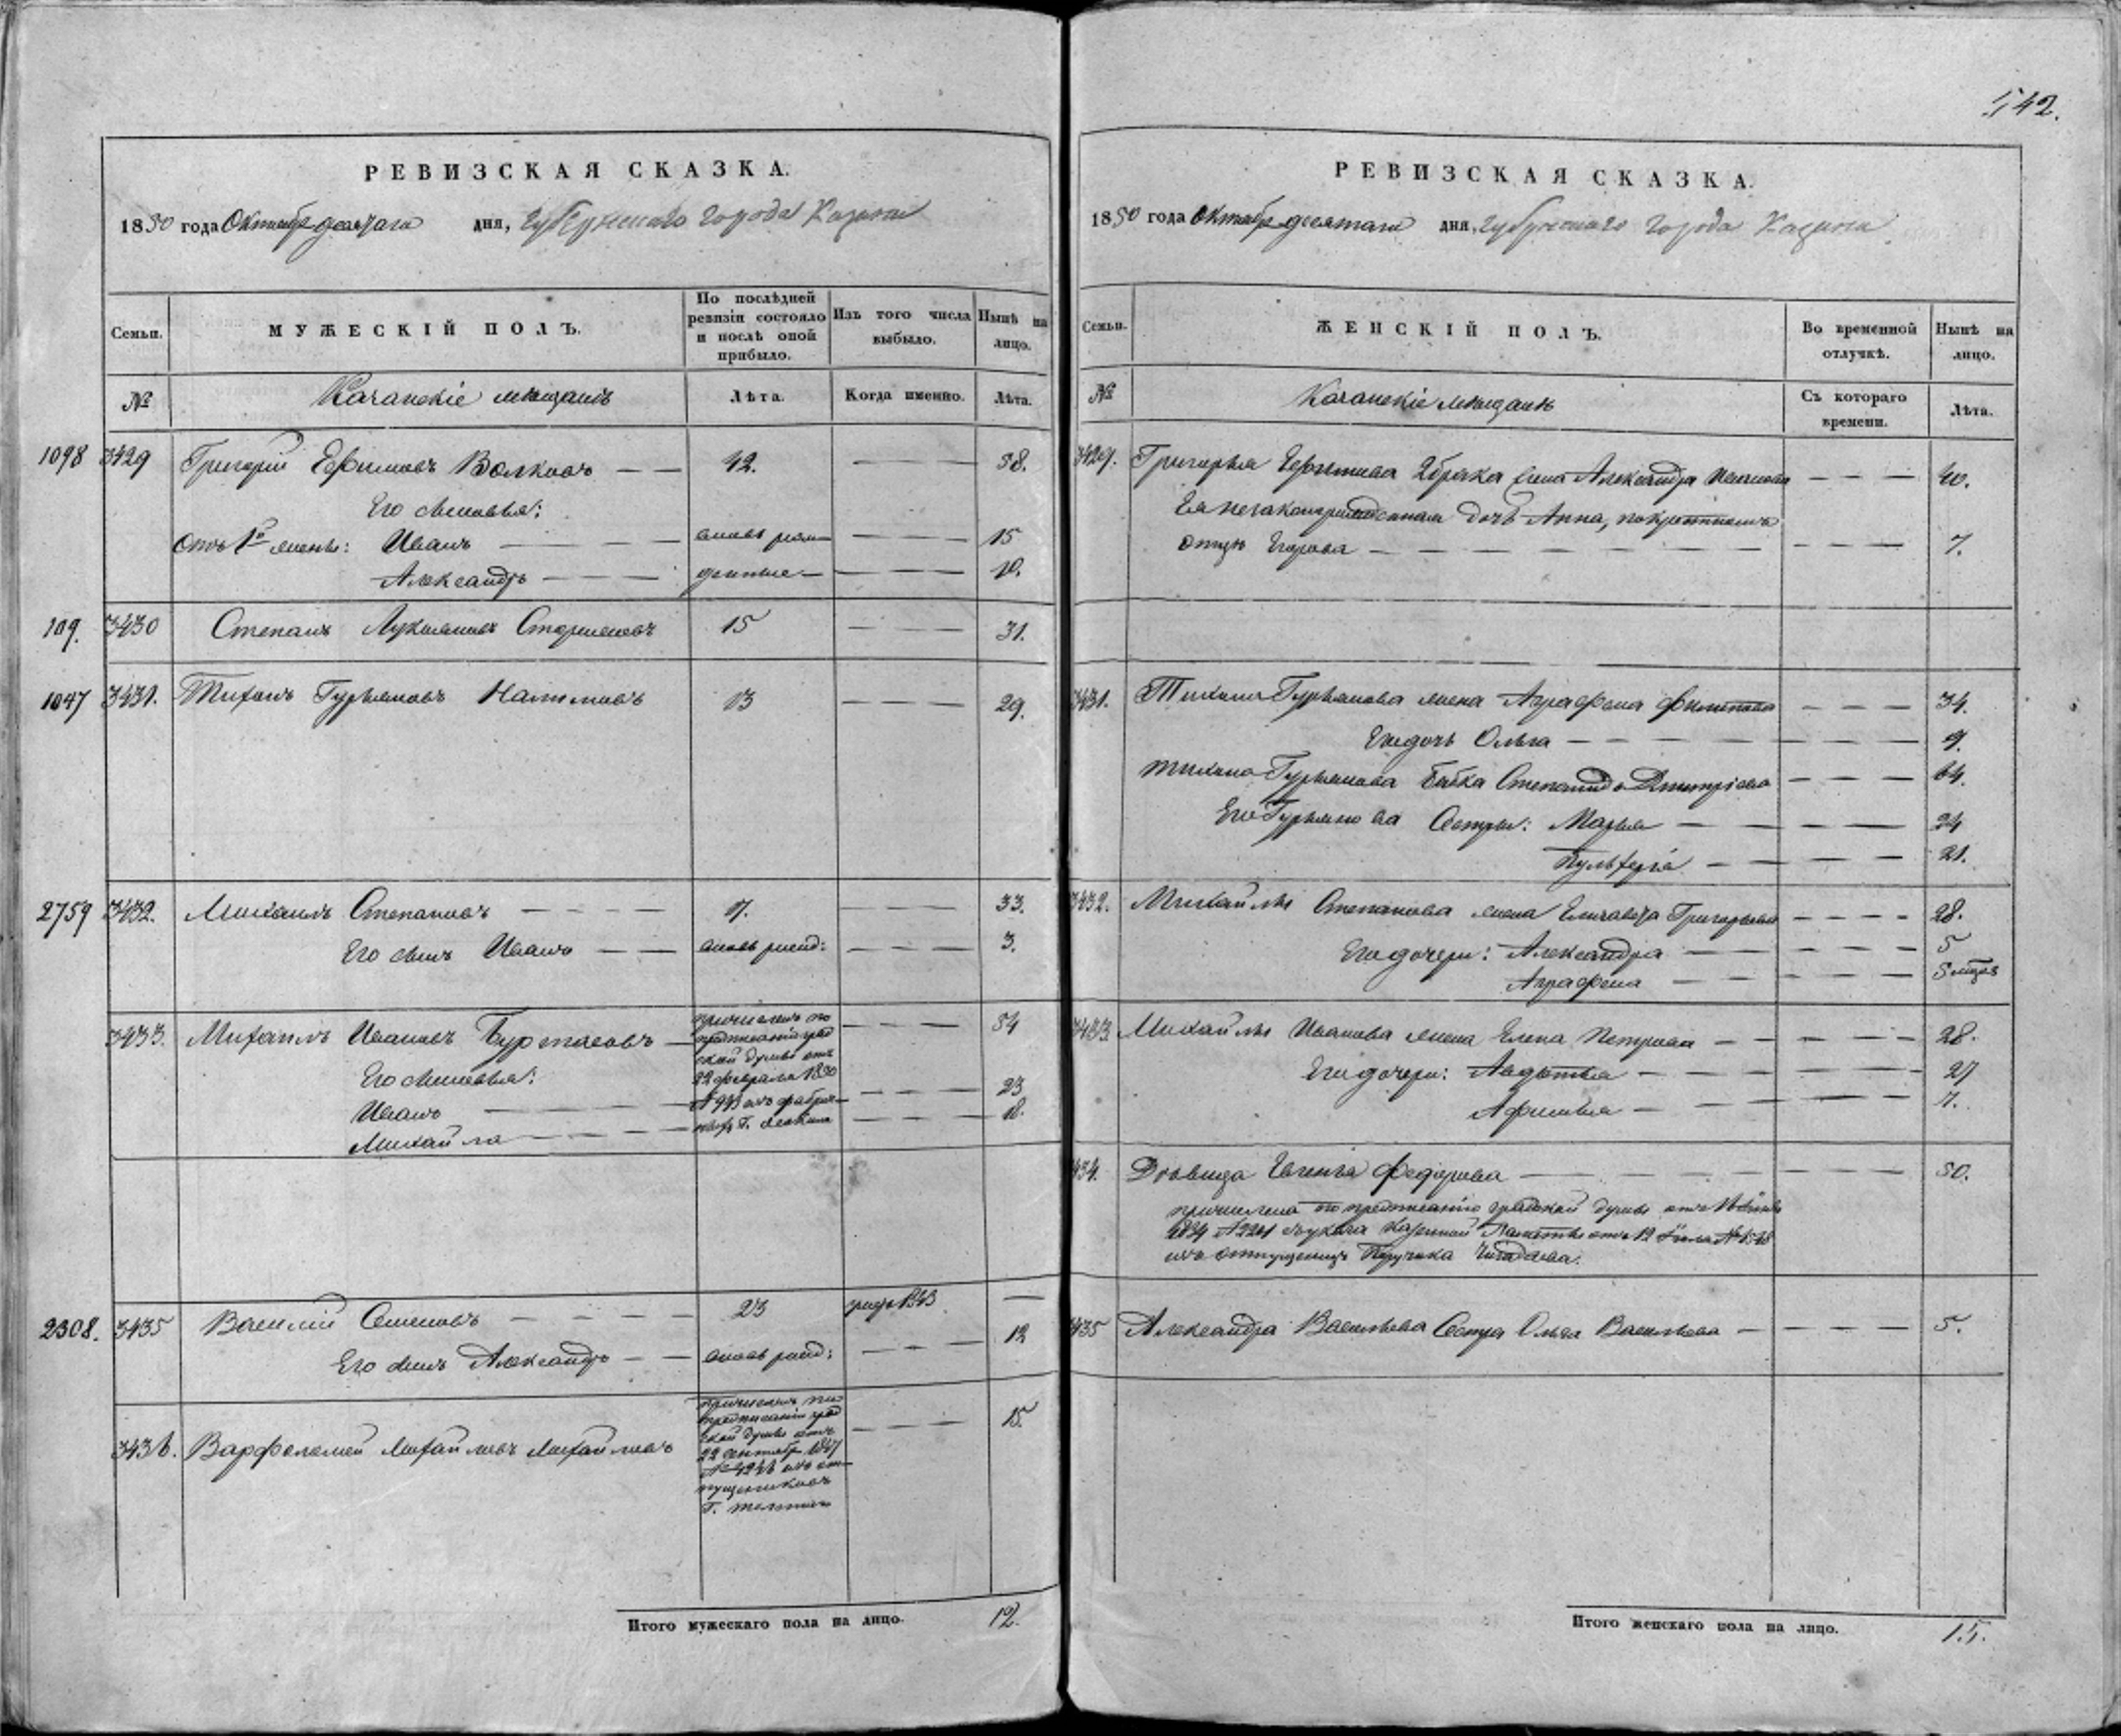 542.
РЕВИЗСКАЯ СКАЗКА.
1850 года Октября десятаго дня, Губернскаго города Казани
Семьи.
МУЖЕСКІЙ ПОЛЪ.
По послѣдней ревизіи состояло и послѣ оной прибыло.
Изъ того числа выбыло.
Нынѣ на лицо.
№
Казанскіе мѣщанѣ
Лѣта.
Когда именно.
Лѣта.
1098 3429 Григорій Ефимовъ Волковъ — — 42. — — — 58.
Его сыновья:
Отъ 1й жены: Иванъ — — — вновь рож — — — 15
Александръ — — — денные — — — 10.
109. 3430 Степанъ Лукьяновъ 15 — — — 31.
1047 3431. Тихонъ Гурьяновъ Налимовъ 13 — — — 29.
2759 3432. Михаилъ Степановъ — — — 17. — — — 33.
Его сынъ Иванъ — — вновь рожд: — — — 3.
3433. Михаилъ Ивановъ Буртасовъ — — — — 54
Его сыновья:
Иванъ — — — — — — 23
Михайла — — — — — — 18.
причисленъ по
предписанію град
ской думы отъ
22 февраля 1850
2308. 3435 Василій Семеновъ — — — — 23 1843 —
Его сынъ Александръ — — вновь рожд: — — — 12
3436. Варфоломей Михайловъ Михайловъ — — — 15.
причисленъ по
предписанію град
ской думы отъ
22 сентября 1847
№ 4246 изъ от
пущенниковъ
Итого мужескаго пола на лицо. 12.
РЕВИЗСКАЯ СКАЗКА.
1850 года Октября десятаго дня, Губернскаго города Казани
Семьи.
ЖЕНСКІЙ ПОЛЪ.
Во временной отлучкѣ.
Нынѣ на лицо.
№
Казанскіе мѣщанѣ
Съ котораго времени.
Лѣта.
3429. Григорья Ефимова 2 брака жена Александра Иванова — — — 40.
Ея незаконнорожденная дочь Анна, по крестномъ
отцѣ Егорова — — — — — — — 7.
3431. Тихона Гурьянова жена Аграфена Филипова — — — 34.
Его дочь Ольга — — — — — — 9.
Тихона Гурьянова бабка Степанида Дмитріева — — — 64.
Его Гурьянова сестры: Марья — — — — — 24
Пульхерія — — — — 21.
3432. Михайлы Степанова жена Елизавета Григорьева — — — — 28.
Его дочери: Александра — — — — — 5
Аграфена — — — — — 5 мѣсяц
3433. Михайлы Иванова жена Елена Петрова — — — — — 28.
Его дочери: Авдотья — — — — — 27
Афимья — — — — — 7.
3434. Вдовица Евгенія Федорова — — — — — — 50.
причислена по предписанію градской думы отъ
1834 № 2241 и указа Казенной Палаты отъ 12
изъ отпущеницъ Поручика
3435 Александра Васильева сестра Ольга Васильева — — — — 5.
Итого женскаго пола на лицо. 15.